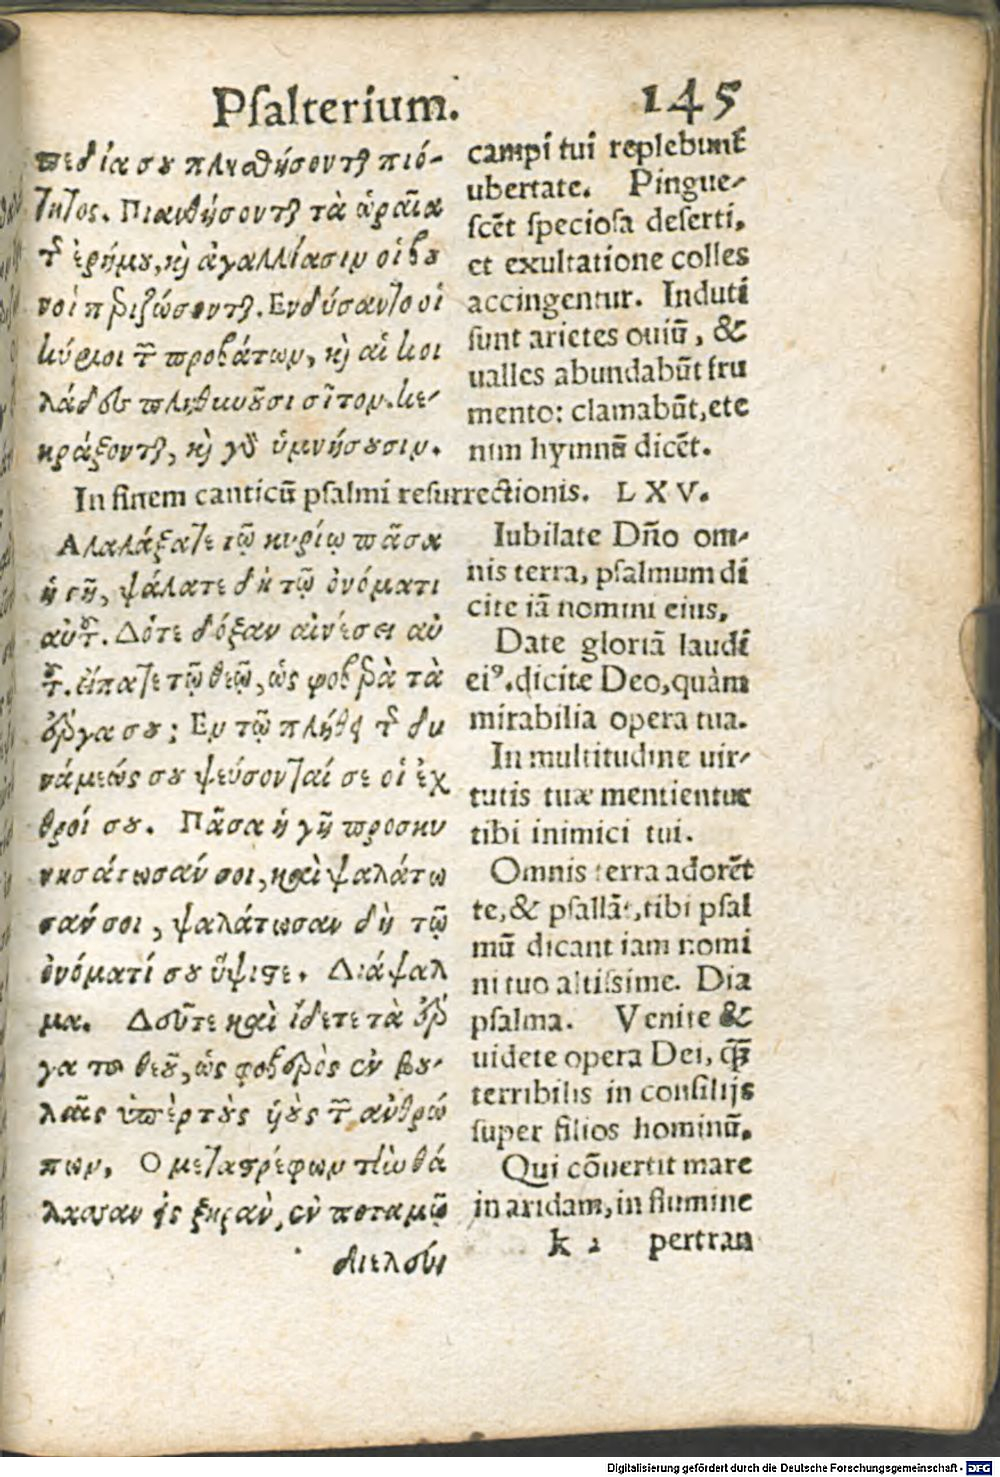 Psalterium. 145
πεδία σου πληθήσονται πιό-
τητος. Πιανθήσονται τὰ ὡραῖα
τῆς ἐρήμου, καὶ ἀγαλλίασιν οἱ βου
νοὶ περιζώσονται. Ενδύσαντο οἱ
κύριοι τῶν προβάτων, καὶ αἱ κοι
λάδες πληθυνοῦσι σῖτον. κε-
κράξονται, καὶ γὸ ὑμνήσουσιν.
campi tui replebunt
ubertate. Pingue-
scẽt speciosa deserti,
et exultatione colles
accingentur. Induti
sunt arietes ouiũ, &
ualles abundabũt fru
mento: clamabũt, ete
nim hymnũ dicẽt.
In finem canticũ psalmi resurrectionis. LXV.
Αλαλάξατε τῷ κυρίῳ πᾶσα
ἡ γῆ, ψάλατε δὴ τῷ ὀνόματι
αὐτοῦ. Δότε δόξαν αἰνέσει αὐ
τοῦ. εἴπατε τῷ θεῷ, ὡς φοβερὰ τὰ
ἔργα σου; Εν τῷ πλήθει τῆς δυ
νάμεώς σου ψεύσονταί σε οἱ ἐχ
θροί σου. Πᾶσα ἡ γῆ προσκυ
νησάτωσάν σοι, καὶ ψαλάτω
σάν σοι, ψαλάτωσαν δὴ τῷ
ὀνόματί σου ὕψιστε. Διάψαλ
μα. Δεῦτε καὶ ἴδετε τὰ ἔρ
γα τοῦ θεοῦ, ὡς φοβερὸς ἐν βου-
λαῖς ὑπὲρ τοὺς ὑοὺς τῶν ἀνθρώ
πων, Ο μεταστρέφων τὴν θά
λασσαν εἰς ξηρὰν, ἐν ποταμῷ
διελεύ
Iubilate Dño om-
nis terra, psalmum di
cite iã nomini eius,
Date gloriã laudi
eiꝰ. dicite Deo, quàm
mirabilia opera tua.
In multitudine uir-
tutis tuæ mentientur
tibi inimici tui.
Omnis terra adorẽt
te, & psallãt, tibi psal
mũ dicant iam nomi
ni tuo altissime. Dia
psalma. Venite &
uidete opera Dei, q̃
terribilis in consilijs
super filios hominũ.
Qui cõuertit mare
in aridam, in flumine
k 2 pertran
Digitalisierung gefördert durch die Deutsche Forschungsgemeinschaft - DFG